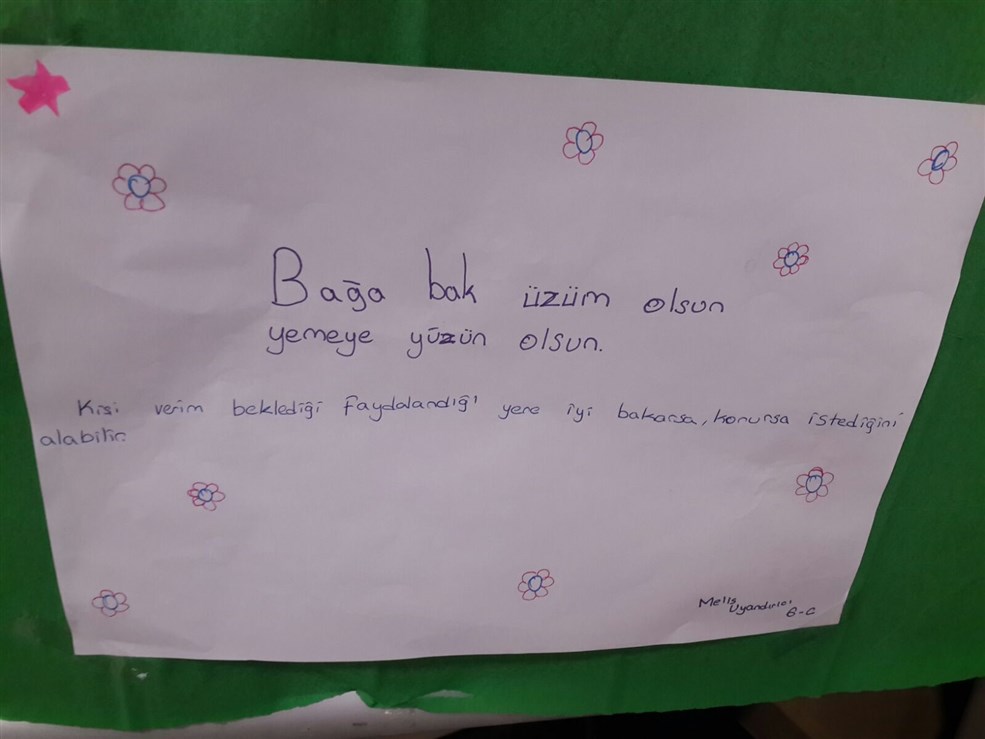 Bağa bak üzüm olsun
yemeye yüzün olsun.
Kişi verim beklediği faydalandığı yere iyi bakarsa, korursa istediğini
alabilir.
Melis
6-C